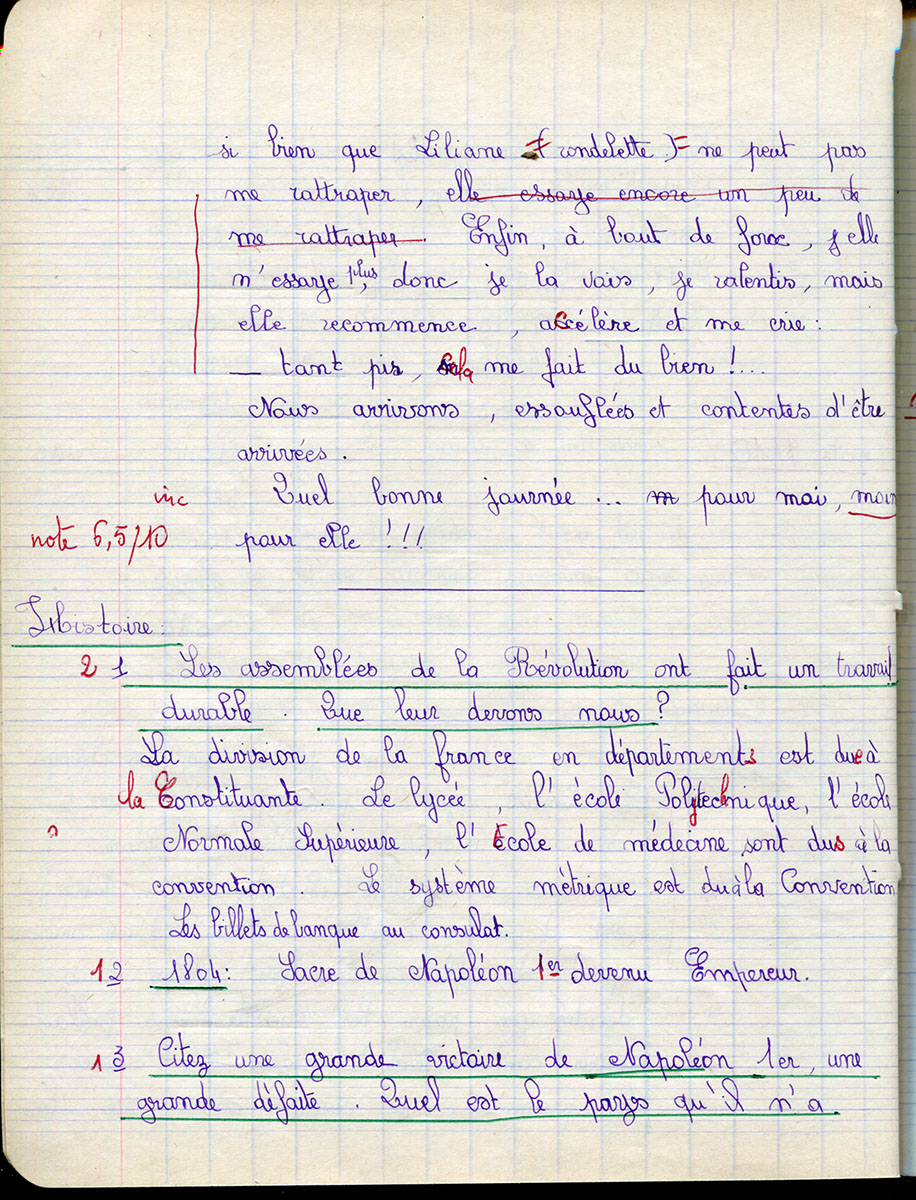 si bien que Liliane (rondelette) ne peut pas
me rattraper, elle essaye encore un peu de
me rattraper. Enfin, à bout de force, elle
n'essaye plus, donc je la vois, je ralentis, mais
elle recommence, accélère et me crie :
— tant pis, cela me fait du bien !...
Nous arrivons, essouflées et contentes d'être
arrivées.
inc Quel bonne journée ... pour moi, moin
note 6,5/10 pour elle !!!
Histoire :
2 1 Les assemblées de la Révolution ont fait un travail
durable. Que leur devons nous ?
La division de la france en départements est due à
la Constituante. Le lycée, l'école Polytechnique, l'école
Normale Supérieure, l'École de médecine sont dus à la
convention. Le système mètrique est du à la Convention
Les billets de banque au consulat.
1 2 1804 : Sacre de Napoléon 1er devenu Empereur.
1 3 Citez une grande victoire de Napoléon 1er, une
grande défaite. Quel est le pays qu'il n'a